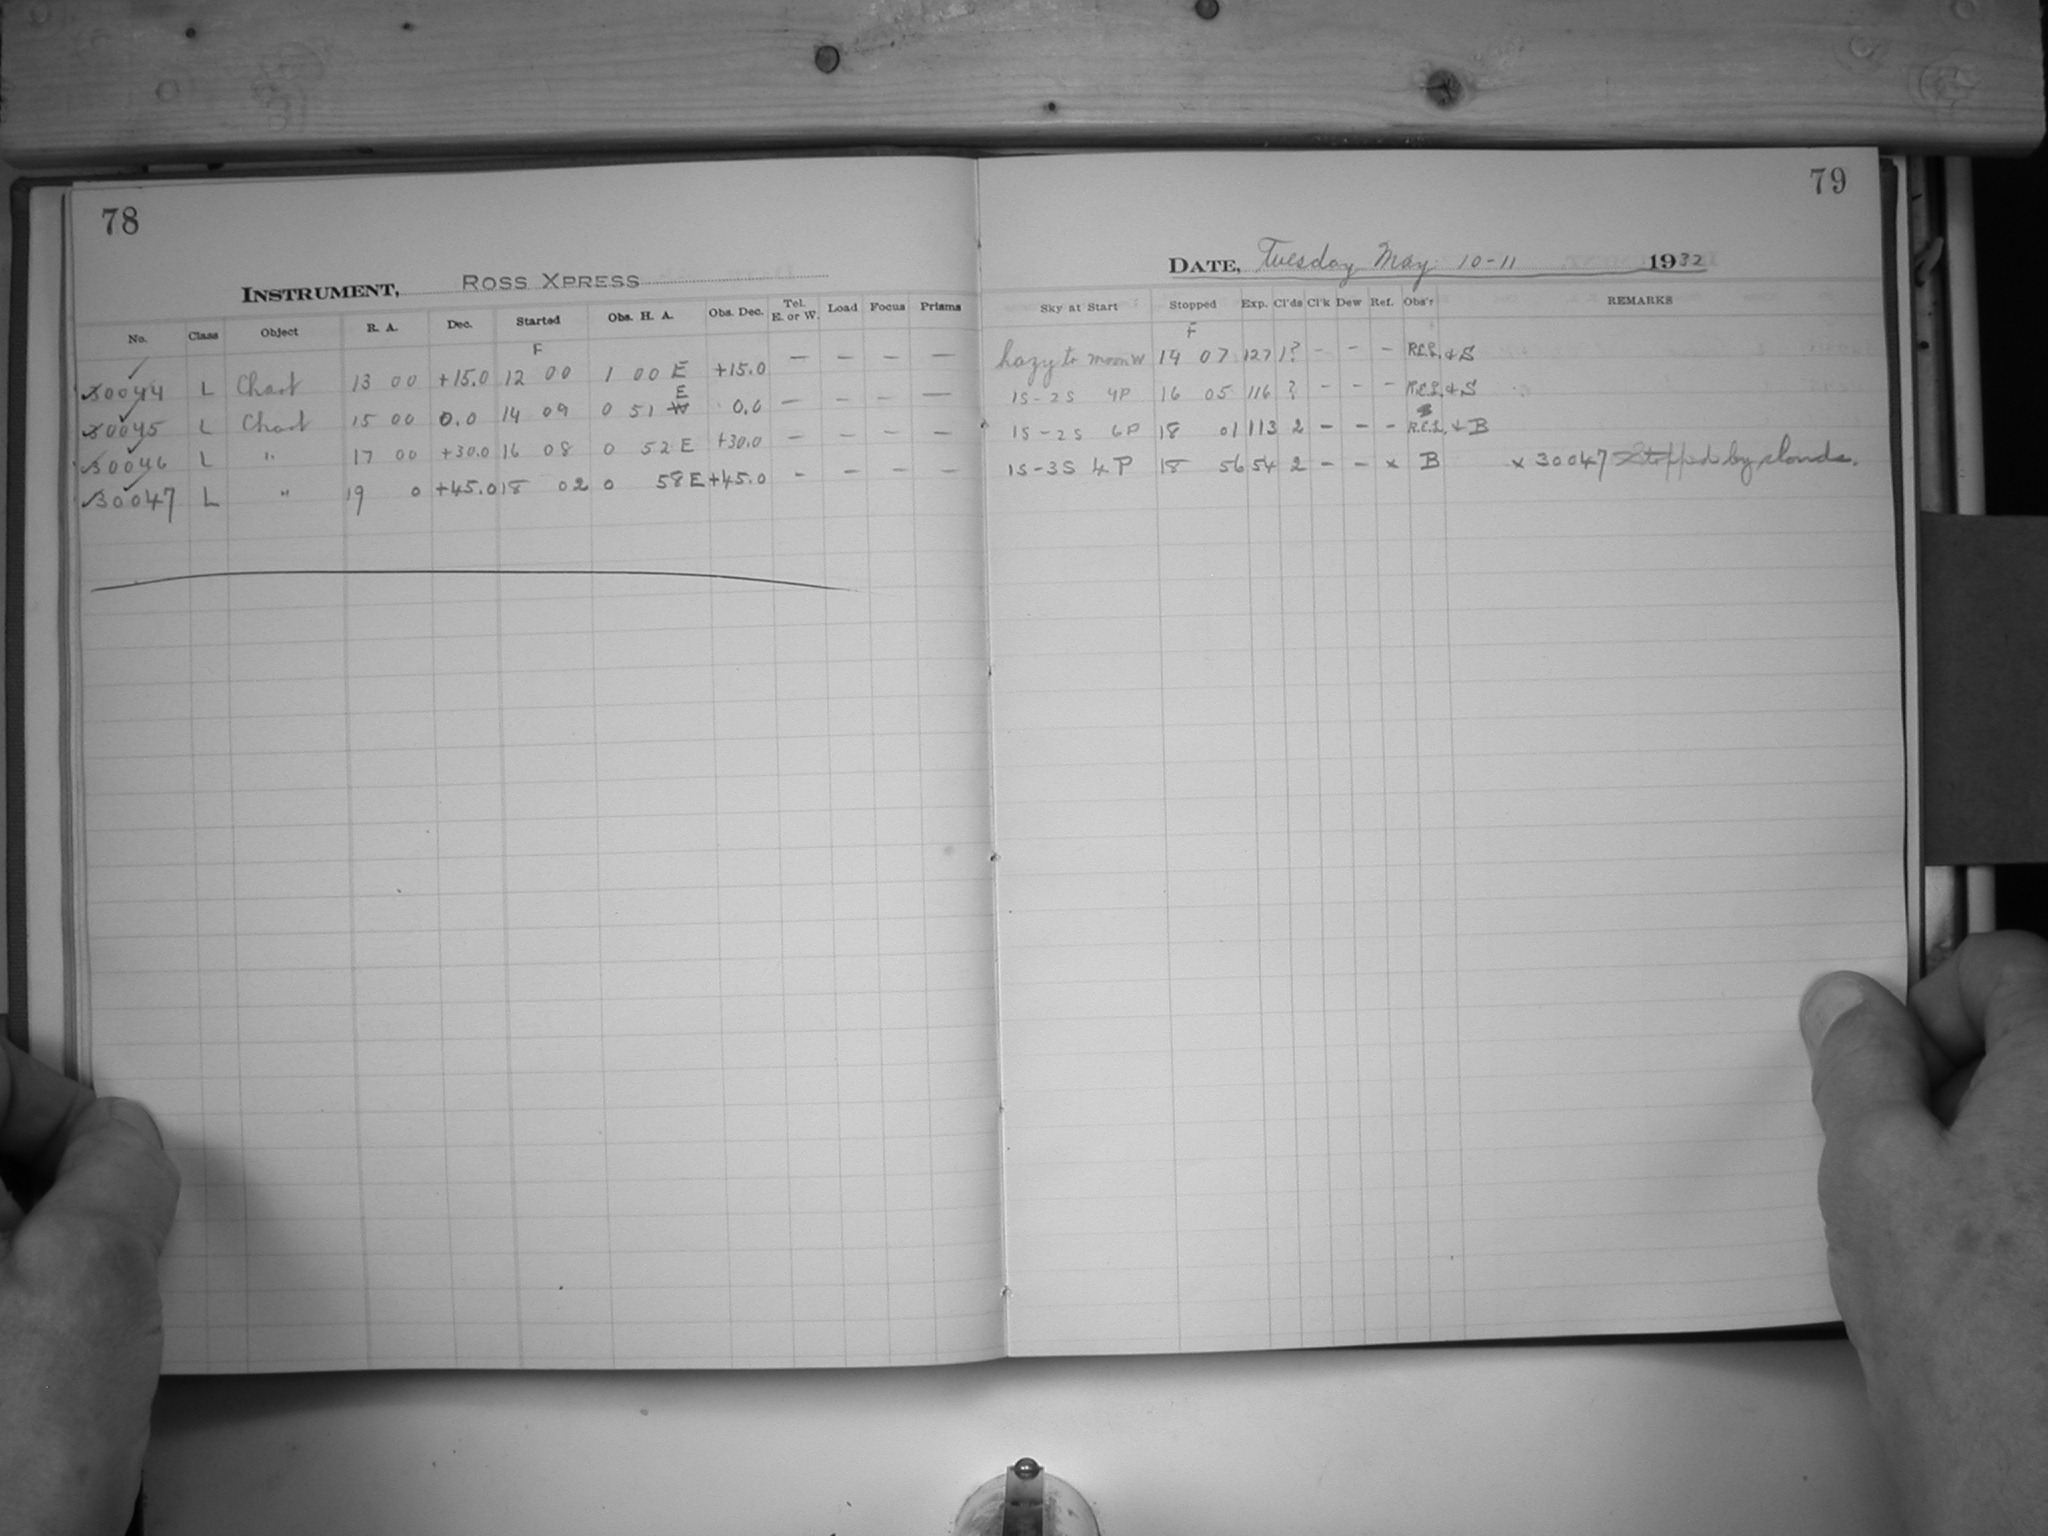 78
INSTRUMENT, ROSS XPRESS
No. Class Object R. A. Dec. Started Obs. H. A. Obs. Dec. Tel. E. or W. Load Focus Prisms
F
30044 L Chart 13 00 +15.0 12 00 1 00 E +15.0 — — — —
E
30045 L Chart 15 00 0.0 14 09 0 51 W 0.0 — — — —
30046 L " 17 00 +30.0 16 08 0 52 E +30.0 – – – –
30047 L " 19 0 +45.0 18 02 0 58 E +45.0 – – – –
79
DATE, Tuesday May 10-11 1932
Sky at Start Stopped Exp. Cl'ds Cl'k Dew Ref. Obs'r REMARKS
F
hazy to moon W 14 07 127 1? – – – R.E.S. & S
1S-2S 4P 16 05 116 ? – – – R.E.S. & S
1S-2S 6P 18 01 113 2 – – – R.E.S. & B
1S-3S 4P 18 56 54 2 – – x B x 30047 Stopped by clouds.